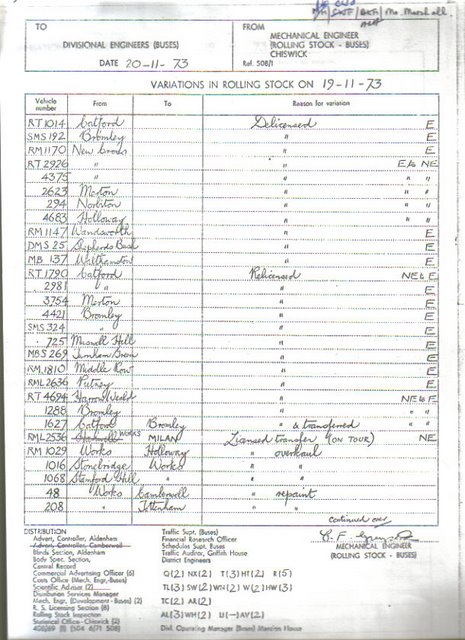 Mr. Marshall.
TO
DIVISIONAL ENGINEERS (BUSES)
DATE 20-11-73
FROM
MECHANICAL ENGINEER
(ROLLING STOCK - BUSES)
CHISWICK
Ref. 508/1
VARIATIONS IN ROLLING STOCK ON 19-11-73
Vehicle number From To Reason for variation
RT1014 Catford Delicensed E
SMS192 Bromley " E
RM1170 New Cross " E
RT2926 " " E to NE
4375 " " " "
2623 Merton " " "
294 Norbiton " " "
4683 Holloway " " "
RM1147 Wandsworth " E
DMS25 Shepherds Bush " E
MB 137 Walthamstow " E
RT1790 Catford Relicensed NE to E
2981 " " E
3754 Merton " E
4421 Bromley " E
SMS324 " " E
" 725 Muswell Hill " E
MBS269 Turnham Green " E
RM1810 Middle Row " E
RML2636 Putney " E
RT4694 Harrow Weald " NE to E
1288 Bromley " " "
1627 Catford Bromley " & transferred " "
RML2536 WORKS MILAN Licensed transfer (ON TOUR) NE
RM1029 Works Holloway " overhaul
1016 Stonebridge Works " "
1068 Stamford Hill " " "
48 Works Camberwell " repaint
208 " Tottenham " "
continued over
DISTRIBUTION
Advert. Controller, Aldenham
Advert. Controller, Camberwell
Blinds Section, Aldenham
Body Spec. Section,
Central Record
Commercial Advertising Officer (6)
Costs Office (Mech. Engr.-Buses)
Scientific Adviser (2)
Distribution Services Manager
Mech. Engr. (Development - Buses) (2)
R. S. Licensing Section (8)
Rolling Stock Inspection
Statistical Office - Chiswick (2)
Traffic Supt. (Buses)
Financial Research Officer
Schedules Supt. Buses
Traffic Auditor, Griffith House
District Engineers
Q(2) NX(2) T(3) HT(2) R(5)
TL(3) SW(2) WN(2) W(2) HW(3)
TC(2) AR(2)
AL(3) WH(2) U(-) AV(2)
Divl. Operating Manager (Buses) Manston House
MECHANICAL ENGINEER
(ROLLING STOCK - BUSES)